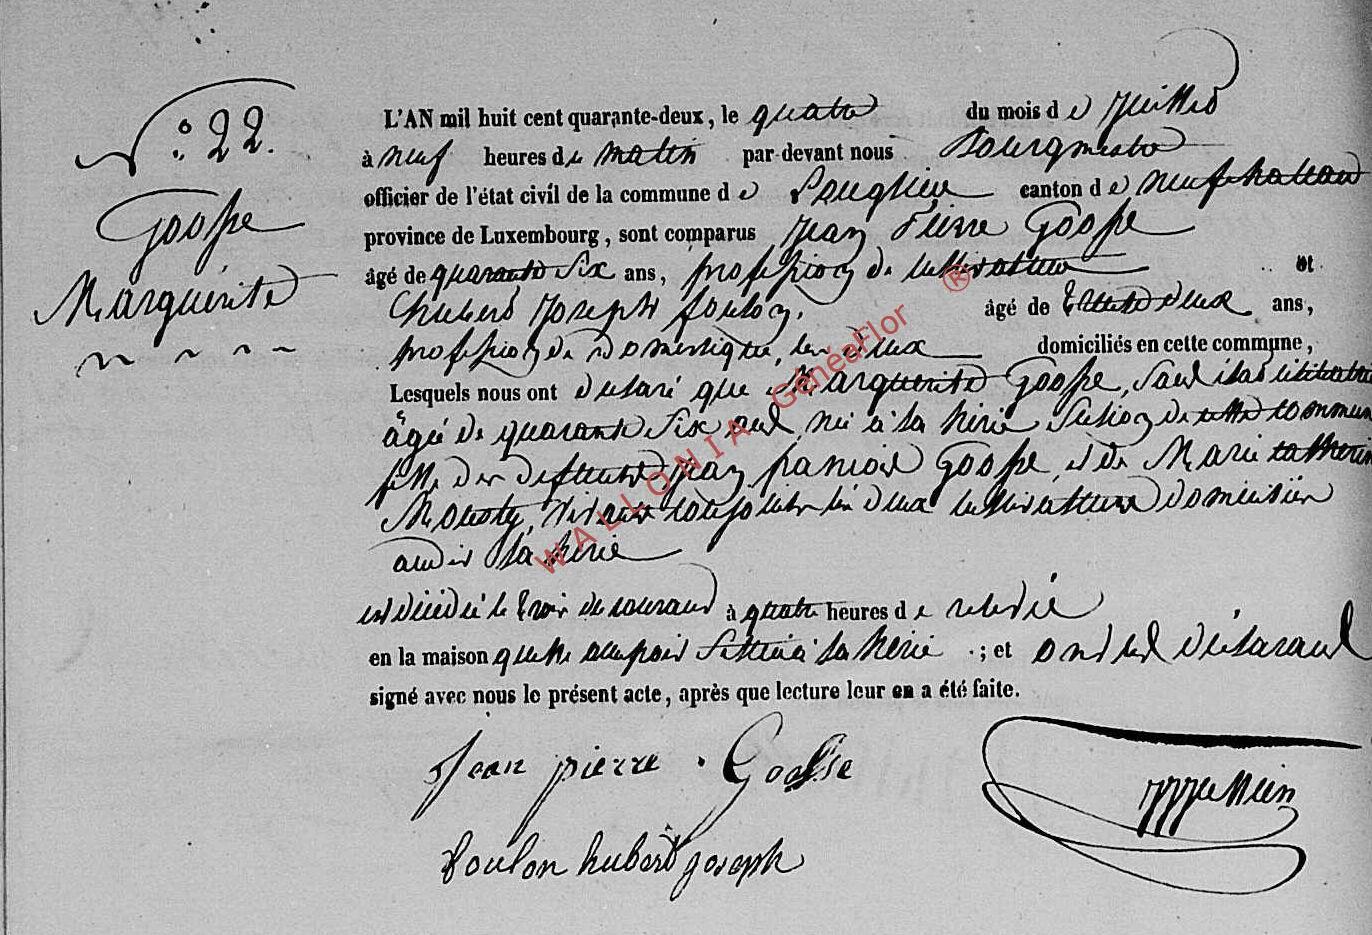 N° 22.
Goosse
Marguerite
L'AN mil huit cent quarante-deux, le quatre du mois de Juillet
à neuf heures du matin par-devant nous Bourgmestre
officier de l'état civil de la commune de Longlier canton de neufchateau
province de Luxembourg, sont comparus Jean Pierre Goosse
âgé de quarante six ans, profession de cultivateur et
hubert Joseph foulon, âgé de trente deux ans,
profession de domestique, les deux domiciliés en cette commune,
Lesquels nous ont déclaré que Marguerite Goosse, sans état
âgée de quarante six ans, née à la hérie section de cette commune
fille des défunts Jean Goosse, et de Marie catherine
vivant conjoints les deux cultivateurs domiciliés
audit la hérie
est décédée le trois du courant à quatre heures de relevé
en la maison qu'elle occupait située à la hérie ; et ont les déclarants
signé avec nous le présent acte, après que lecture leur en a été faite.
Jean pierre . Goosse
foulon hubert joseph
WALLONIA GénéaFlor ®